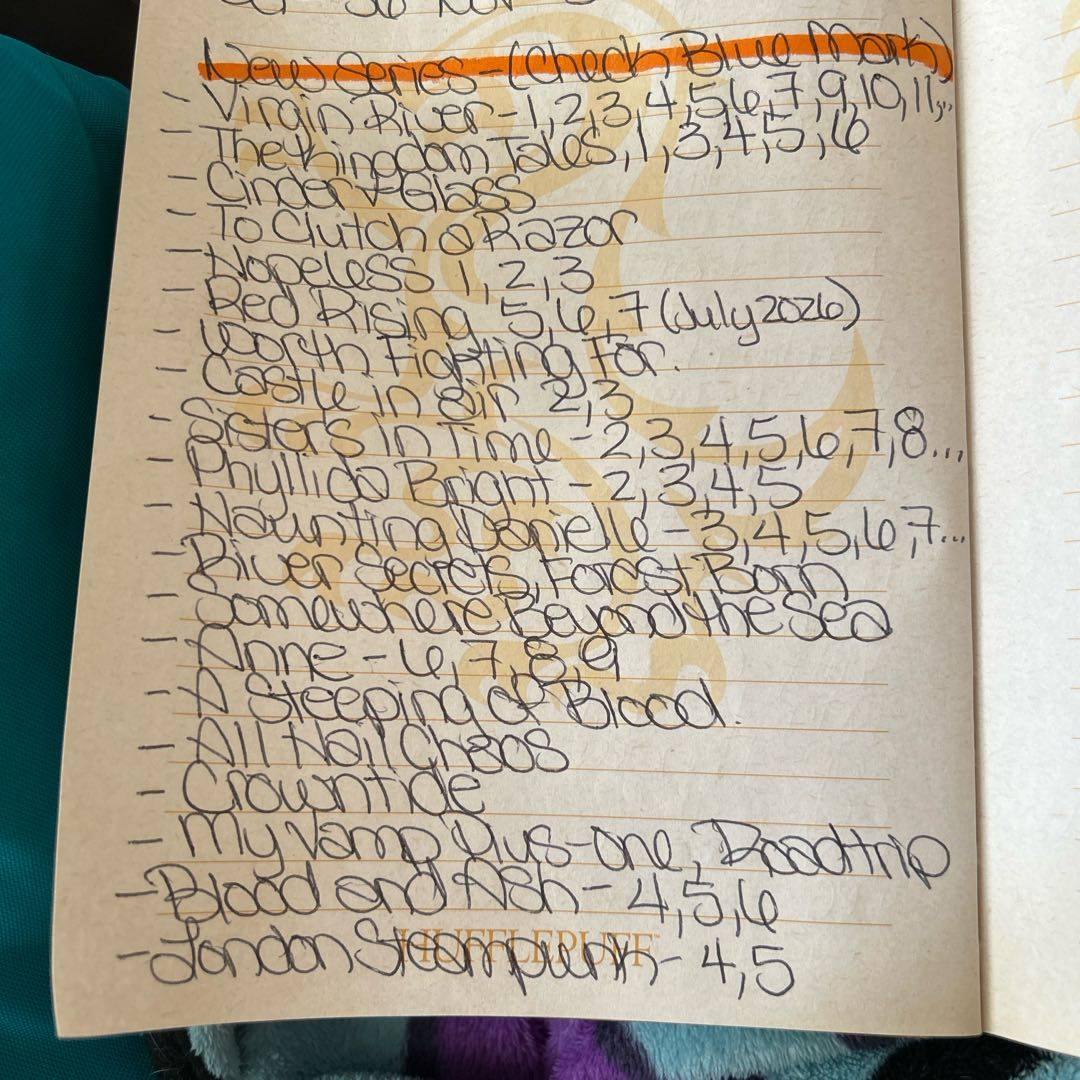 New Series - (Check Blue Mark)
- Virgin River - 1, 2, 3, 4, 5, 6, 7, 9, 10, 11, ...
- The Kingdom Tales, 1, 3, 4, 5, 6
- Cinder & Glass
- To Clutch a Razor
- Hopeless 1, 2, 3
- Red Rising 5, 6, 7 (July 2026)
- Worth Fighting For.
- Castle in air 2, 3
- Sisters In Time - 2, 3, 4, 5, 6, 7, 8...
- Phyllida Bright - 2, 3, 4, 5
- Haunting Danielle - 3, 4, 5, 6, 7...
- River Secrets, Forest Born
- Somewhere Beyond the Sea
- Anne - 6, 7, 8, 9
- A Steeping of Blood.
- All Hail Chaos
- Crowntide
- My Vamp Plus-one, Roadtrip
- Blood and Ash - 4, 5, 6
- London Steampunk - 4, 5
HUFFLEPUFF